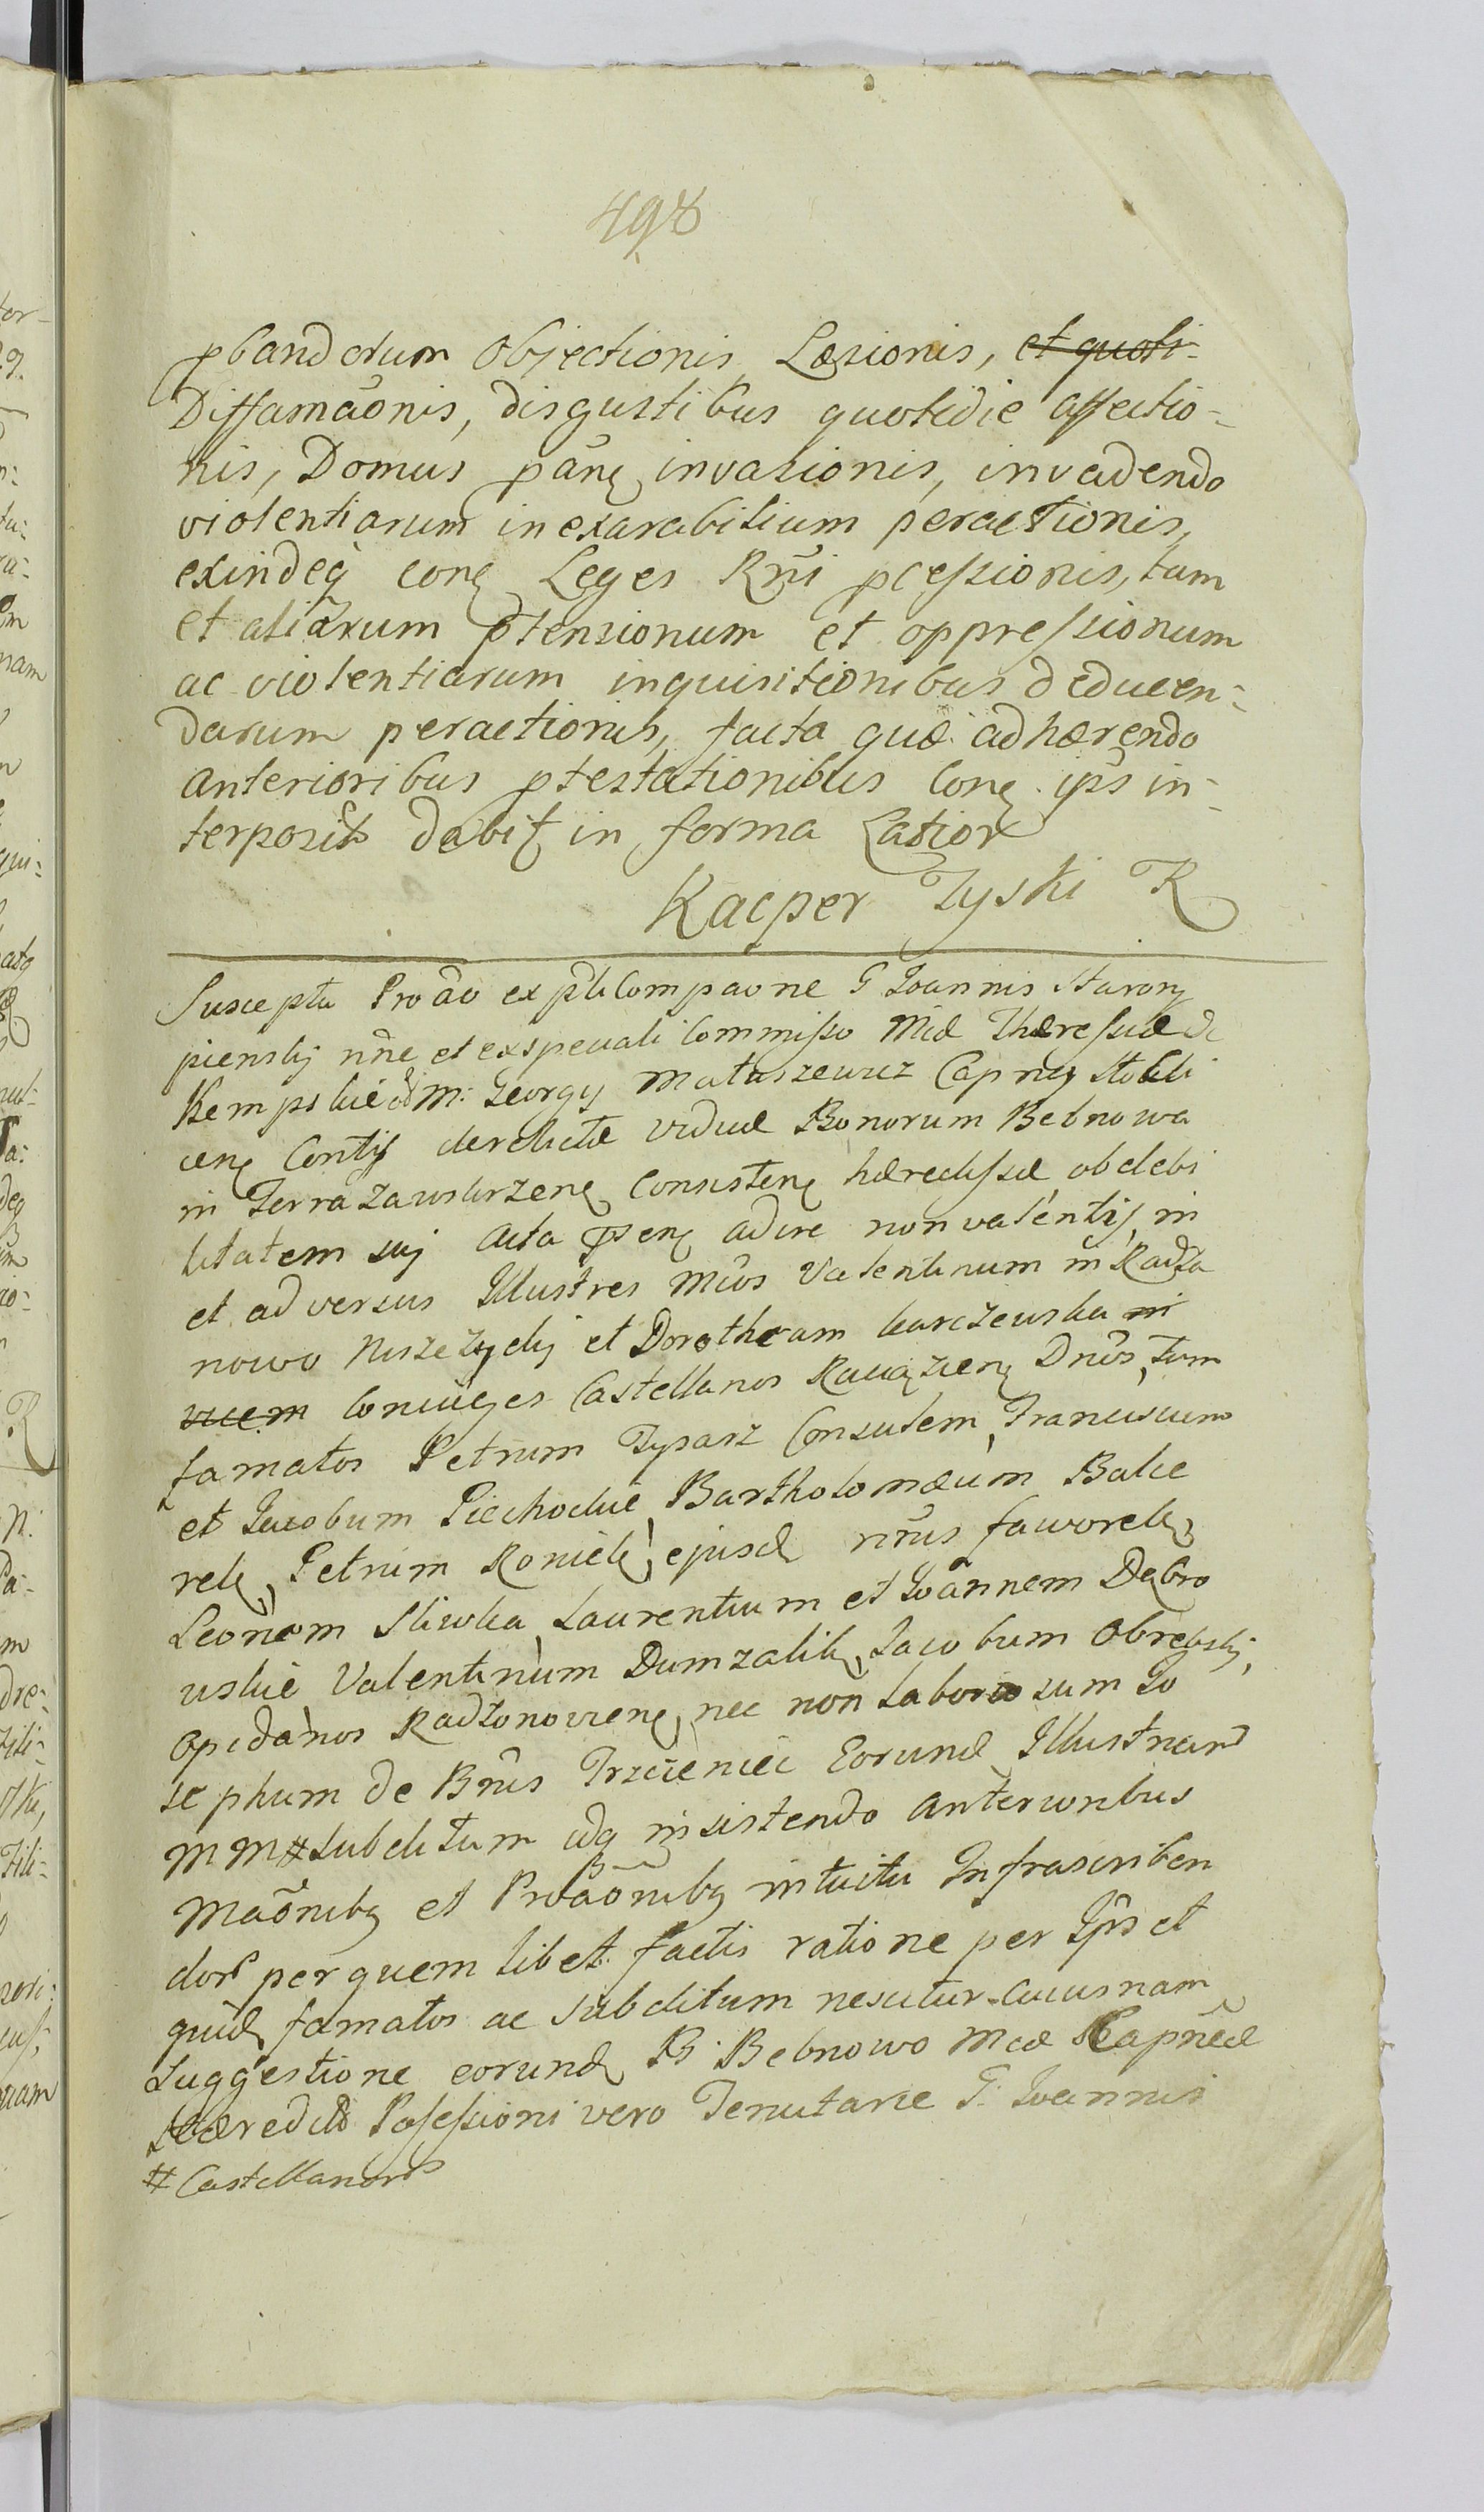 498
pbandorum Objectionis Læsionis, et quoti-
Diffamaõnis, disgustibus quotidie affectio-
nis, Domus pãnę invasionis, invadendo
violentiarum inexarabilium peractionis,
exindeq̃ conę Leges Rñi pcessionis, tam
et aliarum ptensionum et oppressionum
ac violentiarum inquisitionibus deducen-
darum peractionis, facta quæ adhærendo
anterioribus ptestationibus Conę ip̃s in-
terposit debitę in forma Latiori
Kacper Tyski R
Suscepta Proãõ ex ptiCompaone G Joannis Starorę
pienskij nñe et ex speciali Commisso Mcæ Theressiæ de
Kempskie M: Georgij Matuszewicz Capnej Stokli
cenę Contij derelictæ viduæ Bonorum Bebnowa
in Terra Zawskrzenę Consistenę hæredissæ ob debi
litatem sui Acta psenę adire non valentis, in
et adversus Illustres Mcos Valentinum in Radza
nowo Niszczycki et Dorotheam karczewska in
vicem Coniuges Castellanos Raciązienę Dnõs, tum
famatos Petrum Tysarz Consulem, Franciscum
et Jacobum Piechockie, Bartholomæum Balce
rek, Petrum Koniek, ejusd rnus faworek,
Leonem Sliwka, Laurentium et Joannem Dąbro
wskie Valentinum Dumzalik, Jacobum Obrębskij,
opidanos Radzonoviene, nec non laboriosum Jo
sephum de Bnis Trzcieniec Eorund Illustriũm
MM # subditum idq insistendo anterioribus
Maõnibq et Proãõnibq intuitu Infrascriben
dor per quemlibet factis ratione per Ip̃s et
quid famatos ac subditum nescitur cuiusnam
Suggestione eorund B. Bebnowo Mcæ Capnẽæ
Hæredit Possessioni vero Tenutariæ G. Joannis
# Castellanor